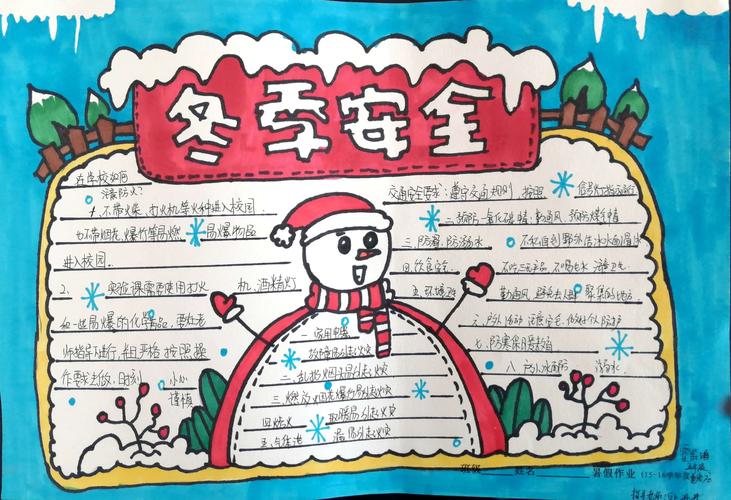 冬季安全
在学校如何
注意防火？
1. 不带火柴、打火机等火种进入校园
也不带烟花、爆竹等易燃 易爆物品
进入校园.
2、 实验课需要使用打火 机、酒精灯
和一些易爆的化学药品，要在老
师指导下进行，并且严格按照操
作要求去做，时刻 小心
谨慎
交通安全要求：遵守交通规则 按照 信号灯指示运行
二 预防一氧化碳 勤通风，预防煤气中毒
三 防滑，防溺水 不私自到野外结冰水面溜冰
四、饮食安全 不吃三无产品、不喝生水 注意卫生
五、环境卫生 勤通风，避免去人群聚集的地方
六、户外活动 注意安全、做好个人防护
七、防寒保暖
八、户外水面防 溺水.
一、家用电器
故障易引起火灾
二、乱扔烟头易引起火灾
三、燃放烟花爆竹易引起火灾
四、烧火 取暖易引起火灾
易引起火灾
班级 姓名 暑假作业